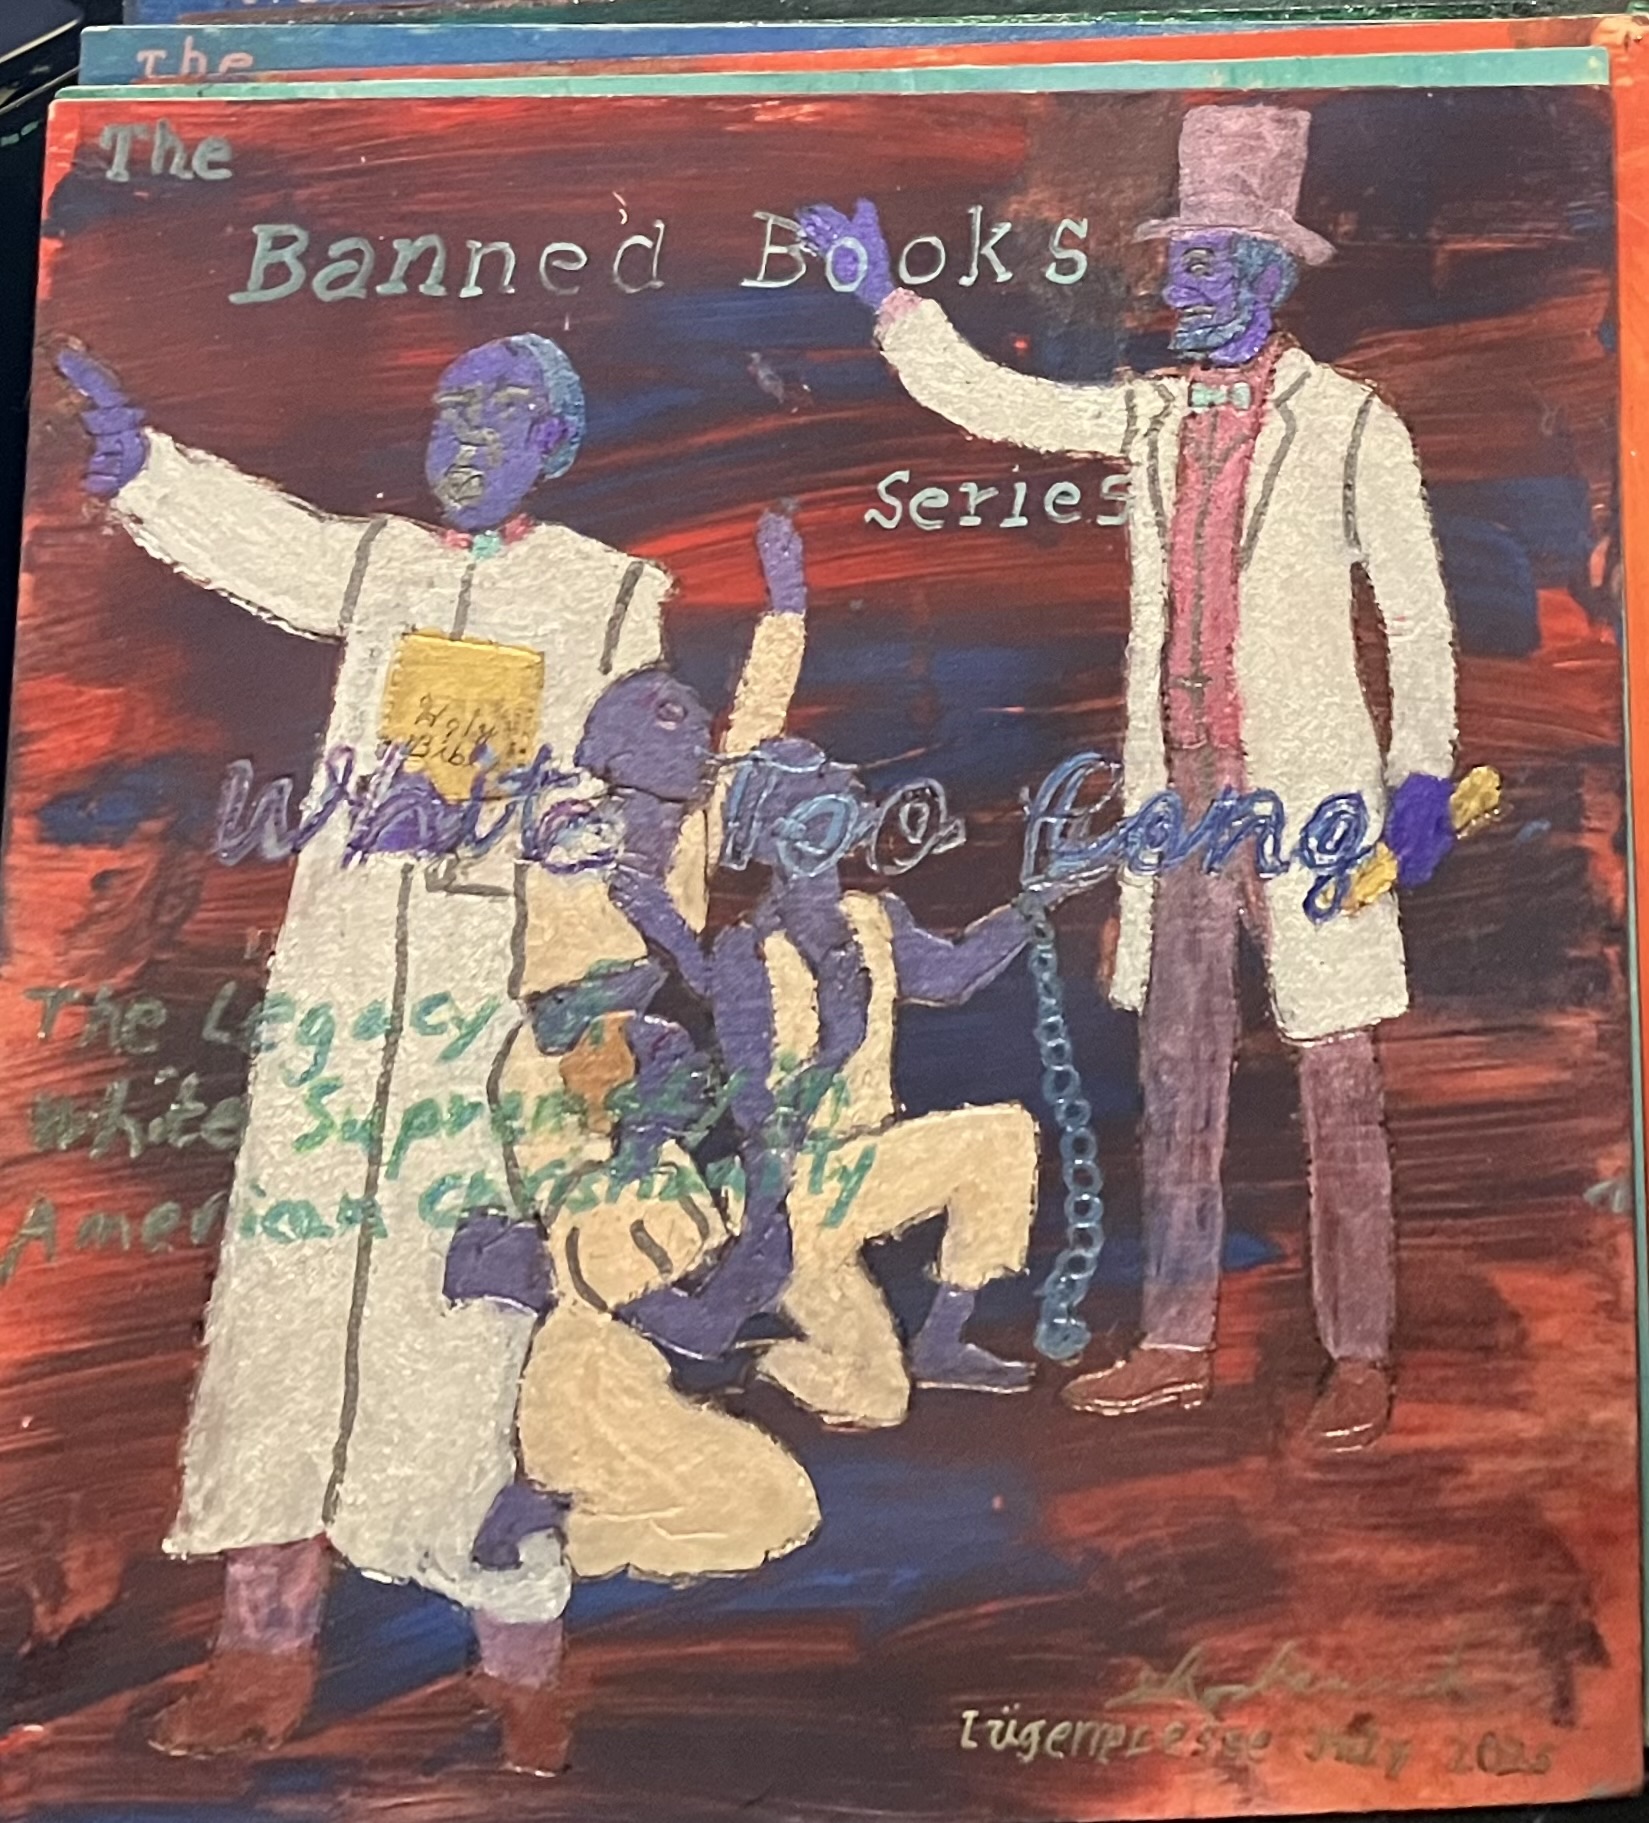 The
The
Banned Books
Series
Holy
Bible
White Too Long
The Legacy of
White Supremacy in
American Christianity
Lügenpresse July 2025